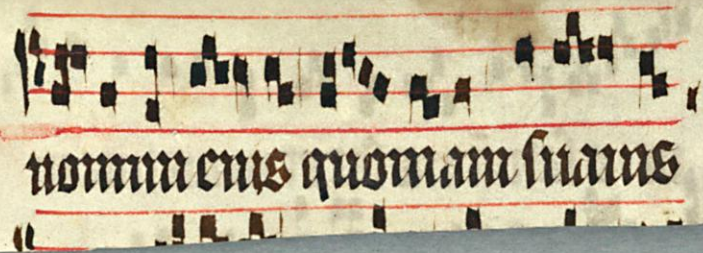 nomini eius quoniam suauis